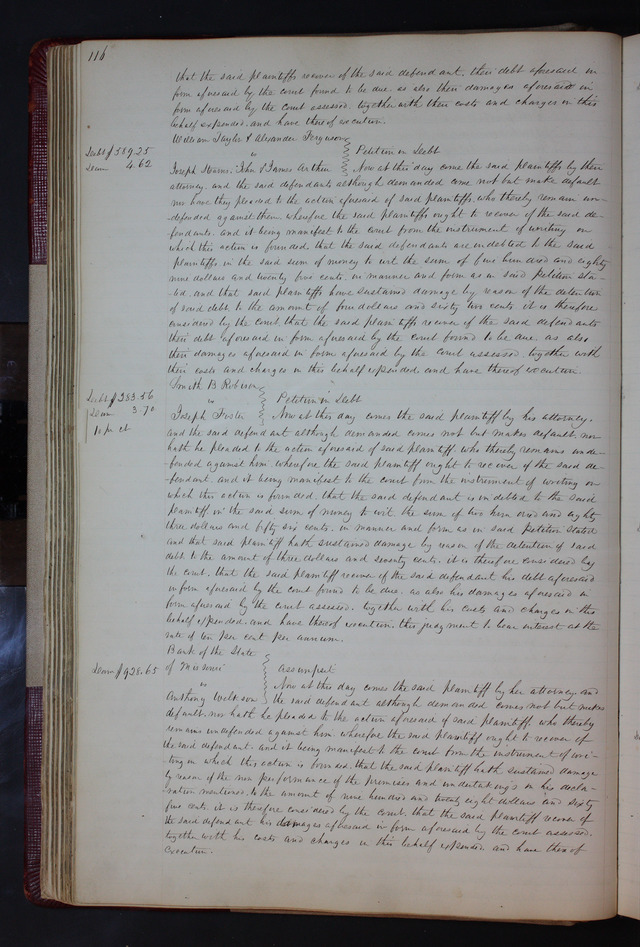 116
that the said plaintiffs recover of the said defendant, their debt aforesaid in
form aforesaid by the court found to be due, as also their damages aforesaid in
form aforesaid by the Court assessed, together with their costs and charges in this
behalf expended, and have thereof execution.
William Taylor & Alexander Ferguson
Debt $589.25
Dam 4.62
vs
Petition in Debt
Joseph John & James Arthur Now at this day come the said plaintiffs by their
attorney, and the said defendants although demanded come not but make default
nor have they pleaded to the action aforesaid of said plaintiffs, who thereby remain un-
defended against them, wherefore the said plaintiffs ought to recover of the said de-
fendants, and it being manifest to the court from the instrument of writing on
which this action is founded, that the said defendants are indebted to the said
plaintiffs in the said sum of money to wit the sum of five hundred and eighty
nine dollars and twenty five cents, in manner and form as in said petition sta-
ted, and that said plaintiffs have sustained damage by reason of the detention
of said debt, to the amount of four dollars and sixty two cents it is therefore
considered by the court, that the said plaintiffs recover of the said defendants
their debt aforesaid in form aforesaid by the court found to be due, as also
their damages aforesaid in form aforesaid by the court assessed, together with
their costs and charges in this behalf expended and have thereof execution.
Smith B Roberson
Debt $283.56
Dam 3.70
10 pr ct
vs
Petition in Debt
Joseph Foster Now at this day comes the said plaintiff by his attorney,
and the said defendant although demanded comes not but makes default, nor
hath he pleaded to the action aforesaid of said plaintiff, who thereby remains unde-
fended against him, wherefore the said plaintiff ought to recover of the said de-
fendant, and it being manifest to the court from the instrument of writing on
which this action is founded, that the said defendant is indebted to the said
plaintiff in the said sum of money to wit the sum of two hundred and eighty
three dollars and fifty six cents, in manner and form as in said petition stated
and that said plaintiff hath sustained damage by reason of the detention of said
debt, to the amount of three dollars and seventy cents, it is therefore considered by
the court, that the said plaintiff recover of the said defendant his debt aforesaid
in form aforesaid by the court found to be due, as also his damages aforesaid in
form aforesaid by the court assessed, together with his costs and charges in this
behalf expended, and have thereof execution, this judgment to bear interest at the
rate of ten per cent per annum.
Bank of the State
Dam $928.65
of Missouri
Assumpsit
vs
Now at this day comes the said plaintiff by her attorney, and
Anthony the said defendant although demanded comes not but makes
default, nor hath he pleaded to the action aforesaid of said plaintiff, who thereby
remains undefended against him, wherefore the said plaintiff ought to recover of
the said defendant, and it being manifest to the court from the instrument of wri-
ting on which this action is founded, that the said plaintiff hath sustained damage
by reason of the non performance of the promises and undertakings in his decla-
ration mentioned, to the amount of nine hundred and twenty eight dollars and sixty
five cents, it is therefore considered by the court, that the said plaintiff recover of
the said defendant his damages aforesaid in form aforesaid by the court assessed,
together with his costs and charges in this behalf expended, and have thereof
Execution.